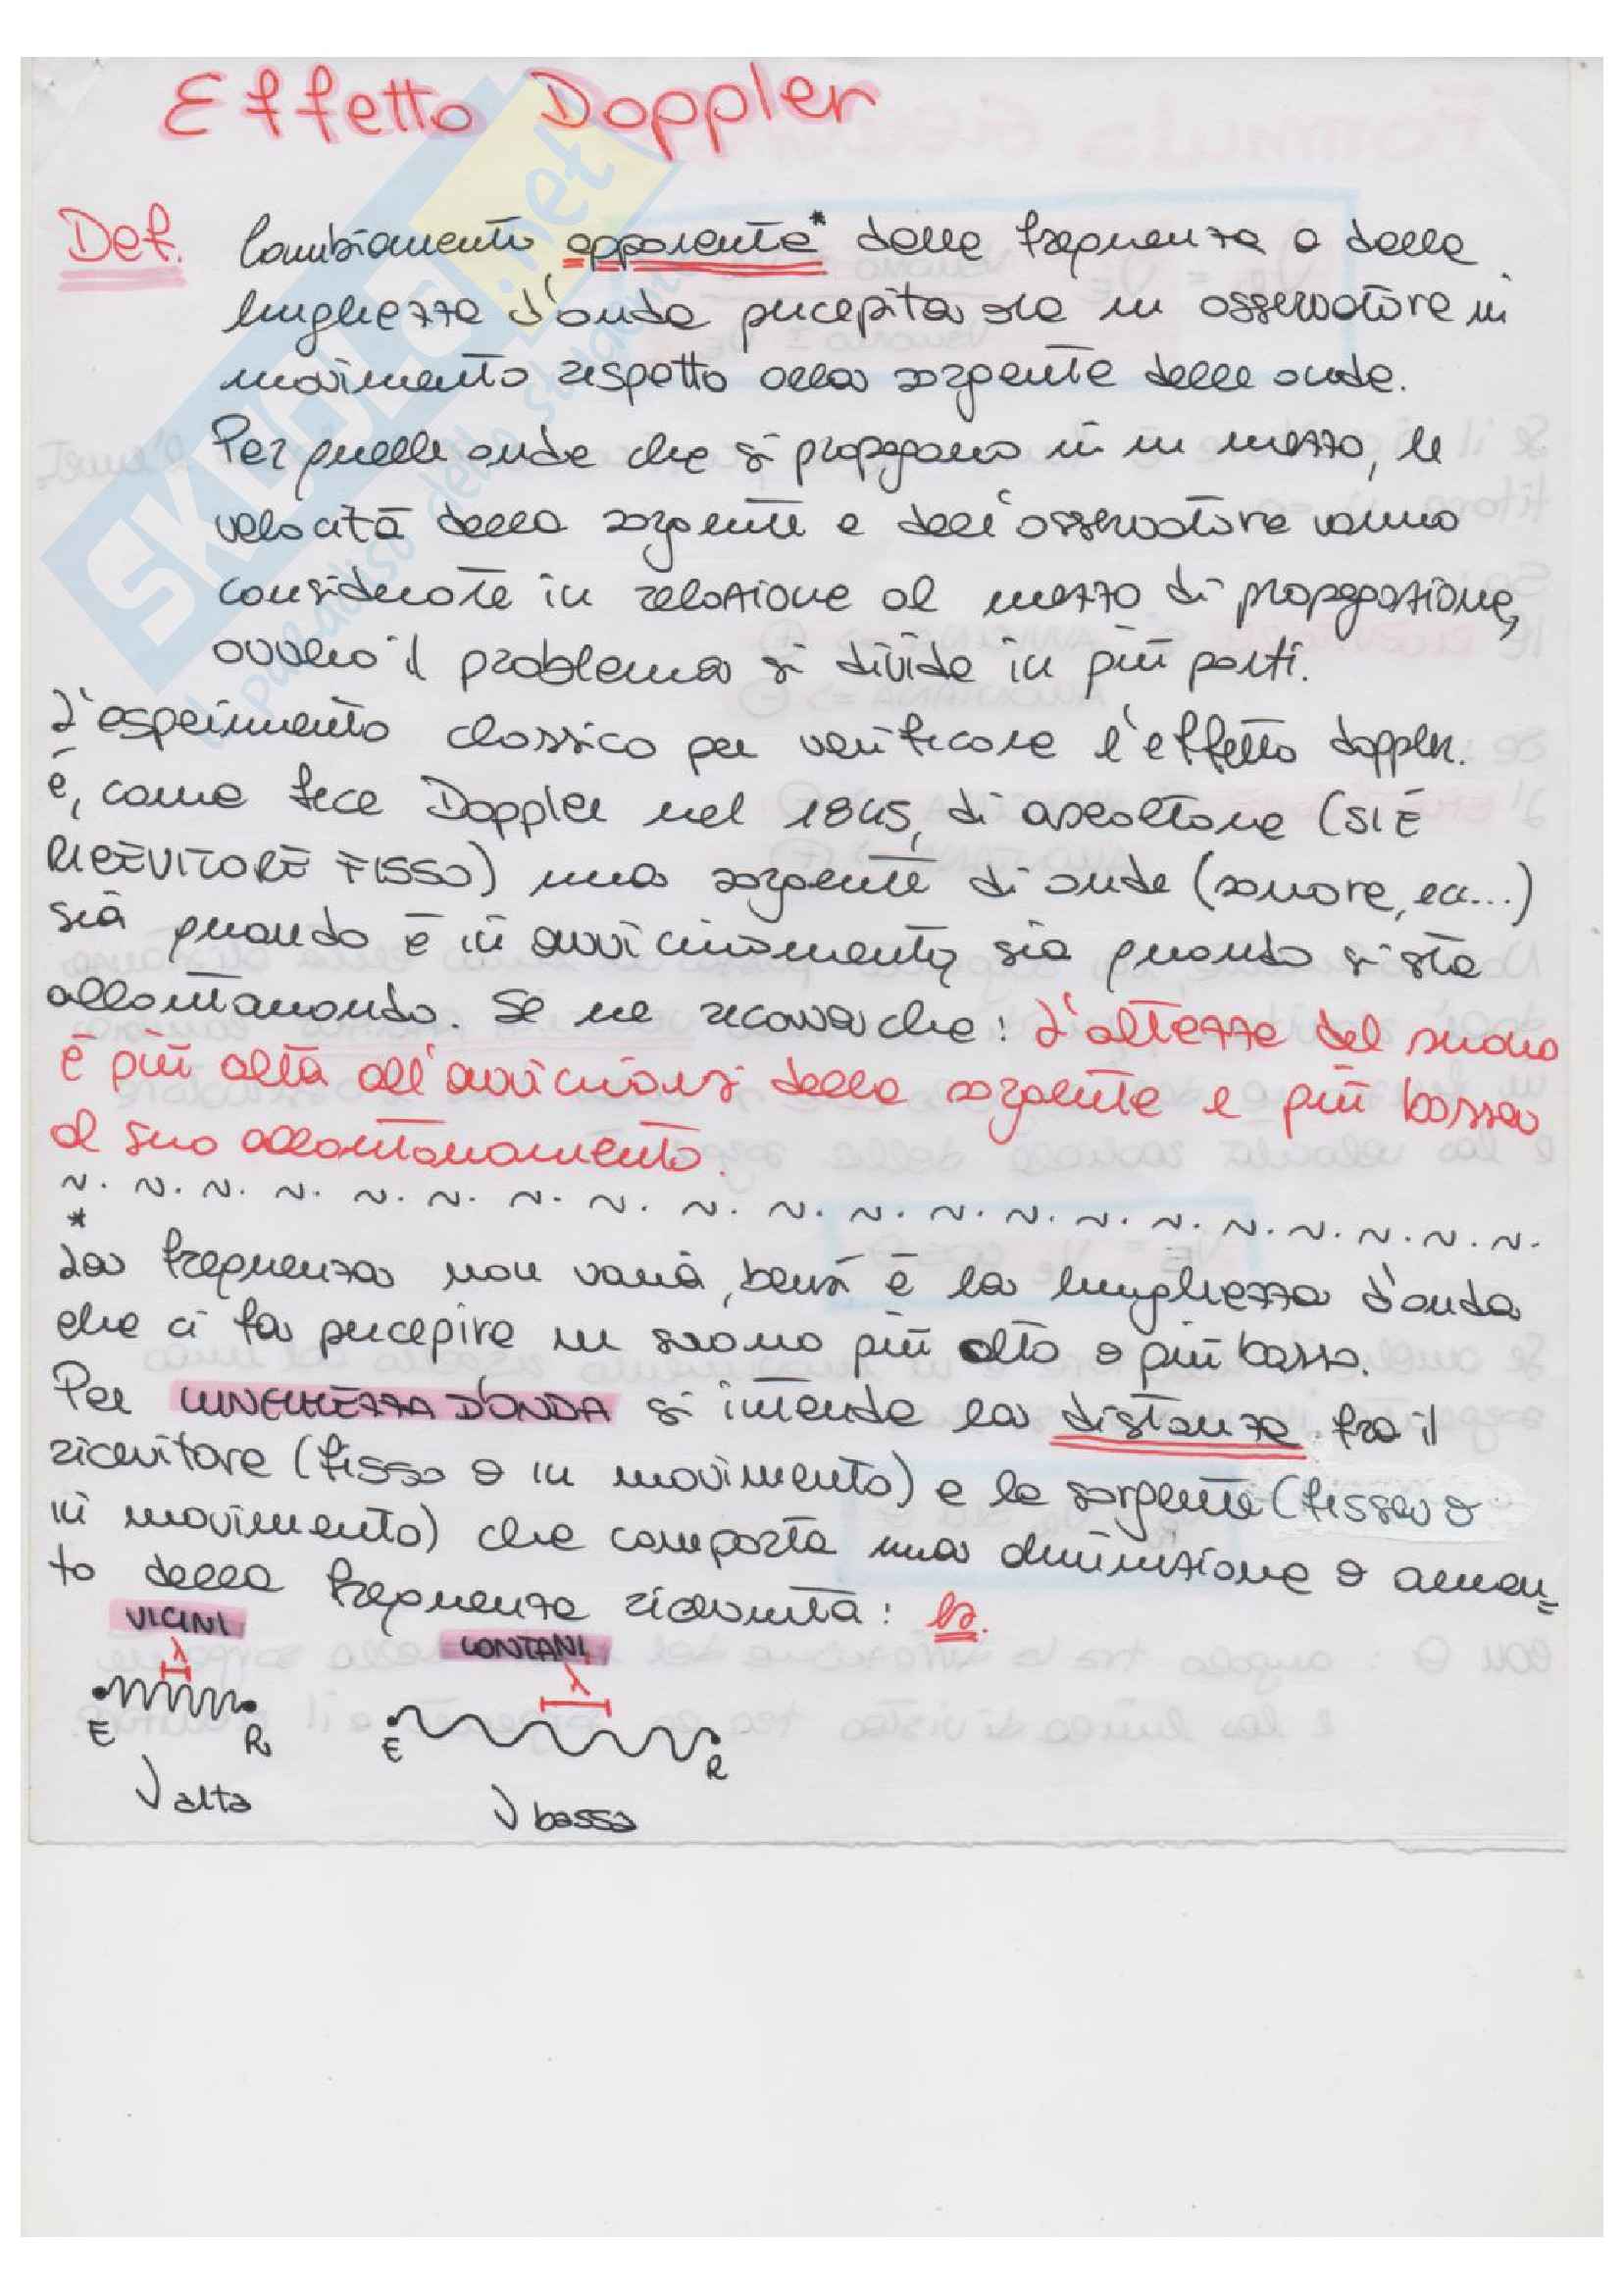 Effetto Doppler
Def. Cambiamento apparente* della frequenza o della
lunghezza d'onda percepita da un osservatore in
movimento rispetto alla sorgente delle onde.
Per quelle onde che si propagano in un mezzo, le
velocità della sorgente e dell'osservatore vanno
considerate in relazione al mezzo di propagazione,
ovvero il problema si divide in più parti.
L'esperimento classico per verificare l'effetto doppler.
è, come fece Doppler nel 1845, di ascoltare (SI È
RICEVITORE FISSO) una sorgente di onde (sonore, ecc...)
sia quando è in avvicinamento, sia quando si sta
allontanando. Se ne ricava che: L'altezza del suono
è più alta all'avvicinarsi della sorgente e più bassa
al suo allontanamento.
*
La frequenza non varia, bensì è la lunghezza d'onda
che ci fa percepire un suono più alto o più basso.
Per LUNGHEZZA D'ONDA si intende la distanza fra il
ricevitore (fisso o in movimento) e la sorgente (fissa o
in movimento) che comporta una diminuzione o aumen=
to della frequenza ricevuta:
VICINI
LONTANI
λ
λ
E R
E R
ν alta
ν bassa
SKUOLA.net
il paradiso dello studente